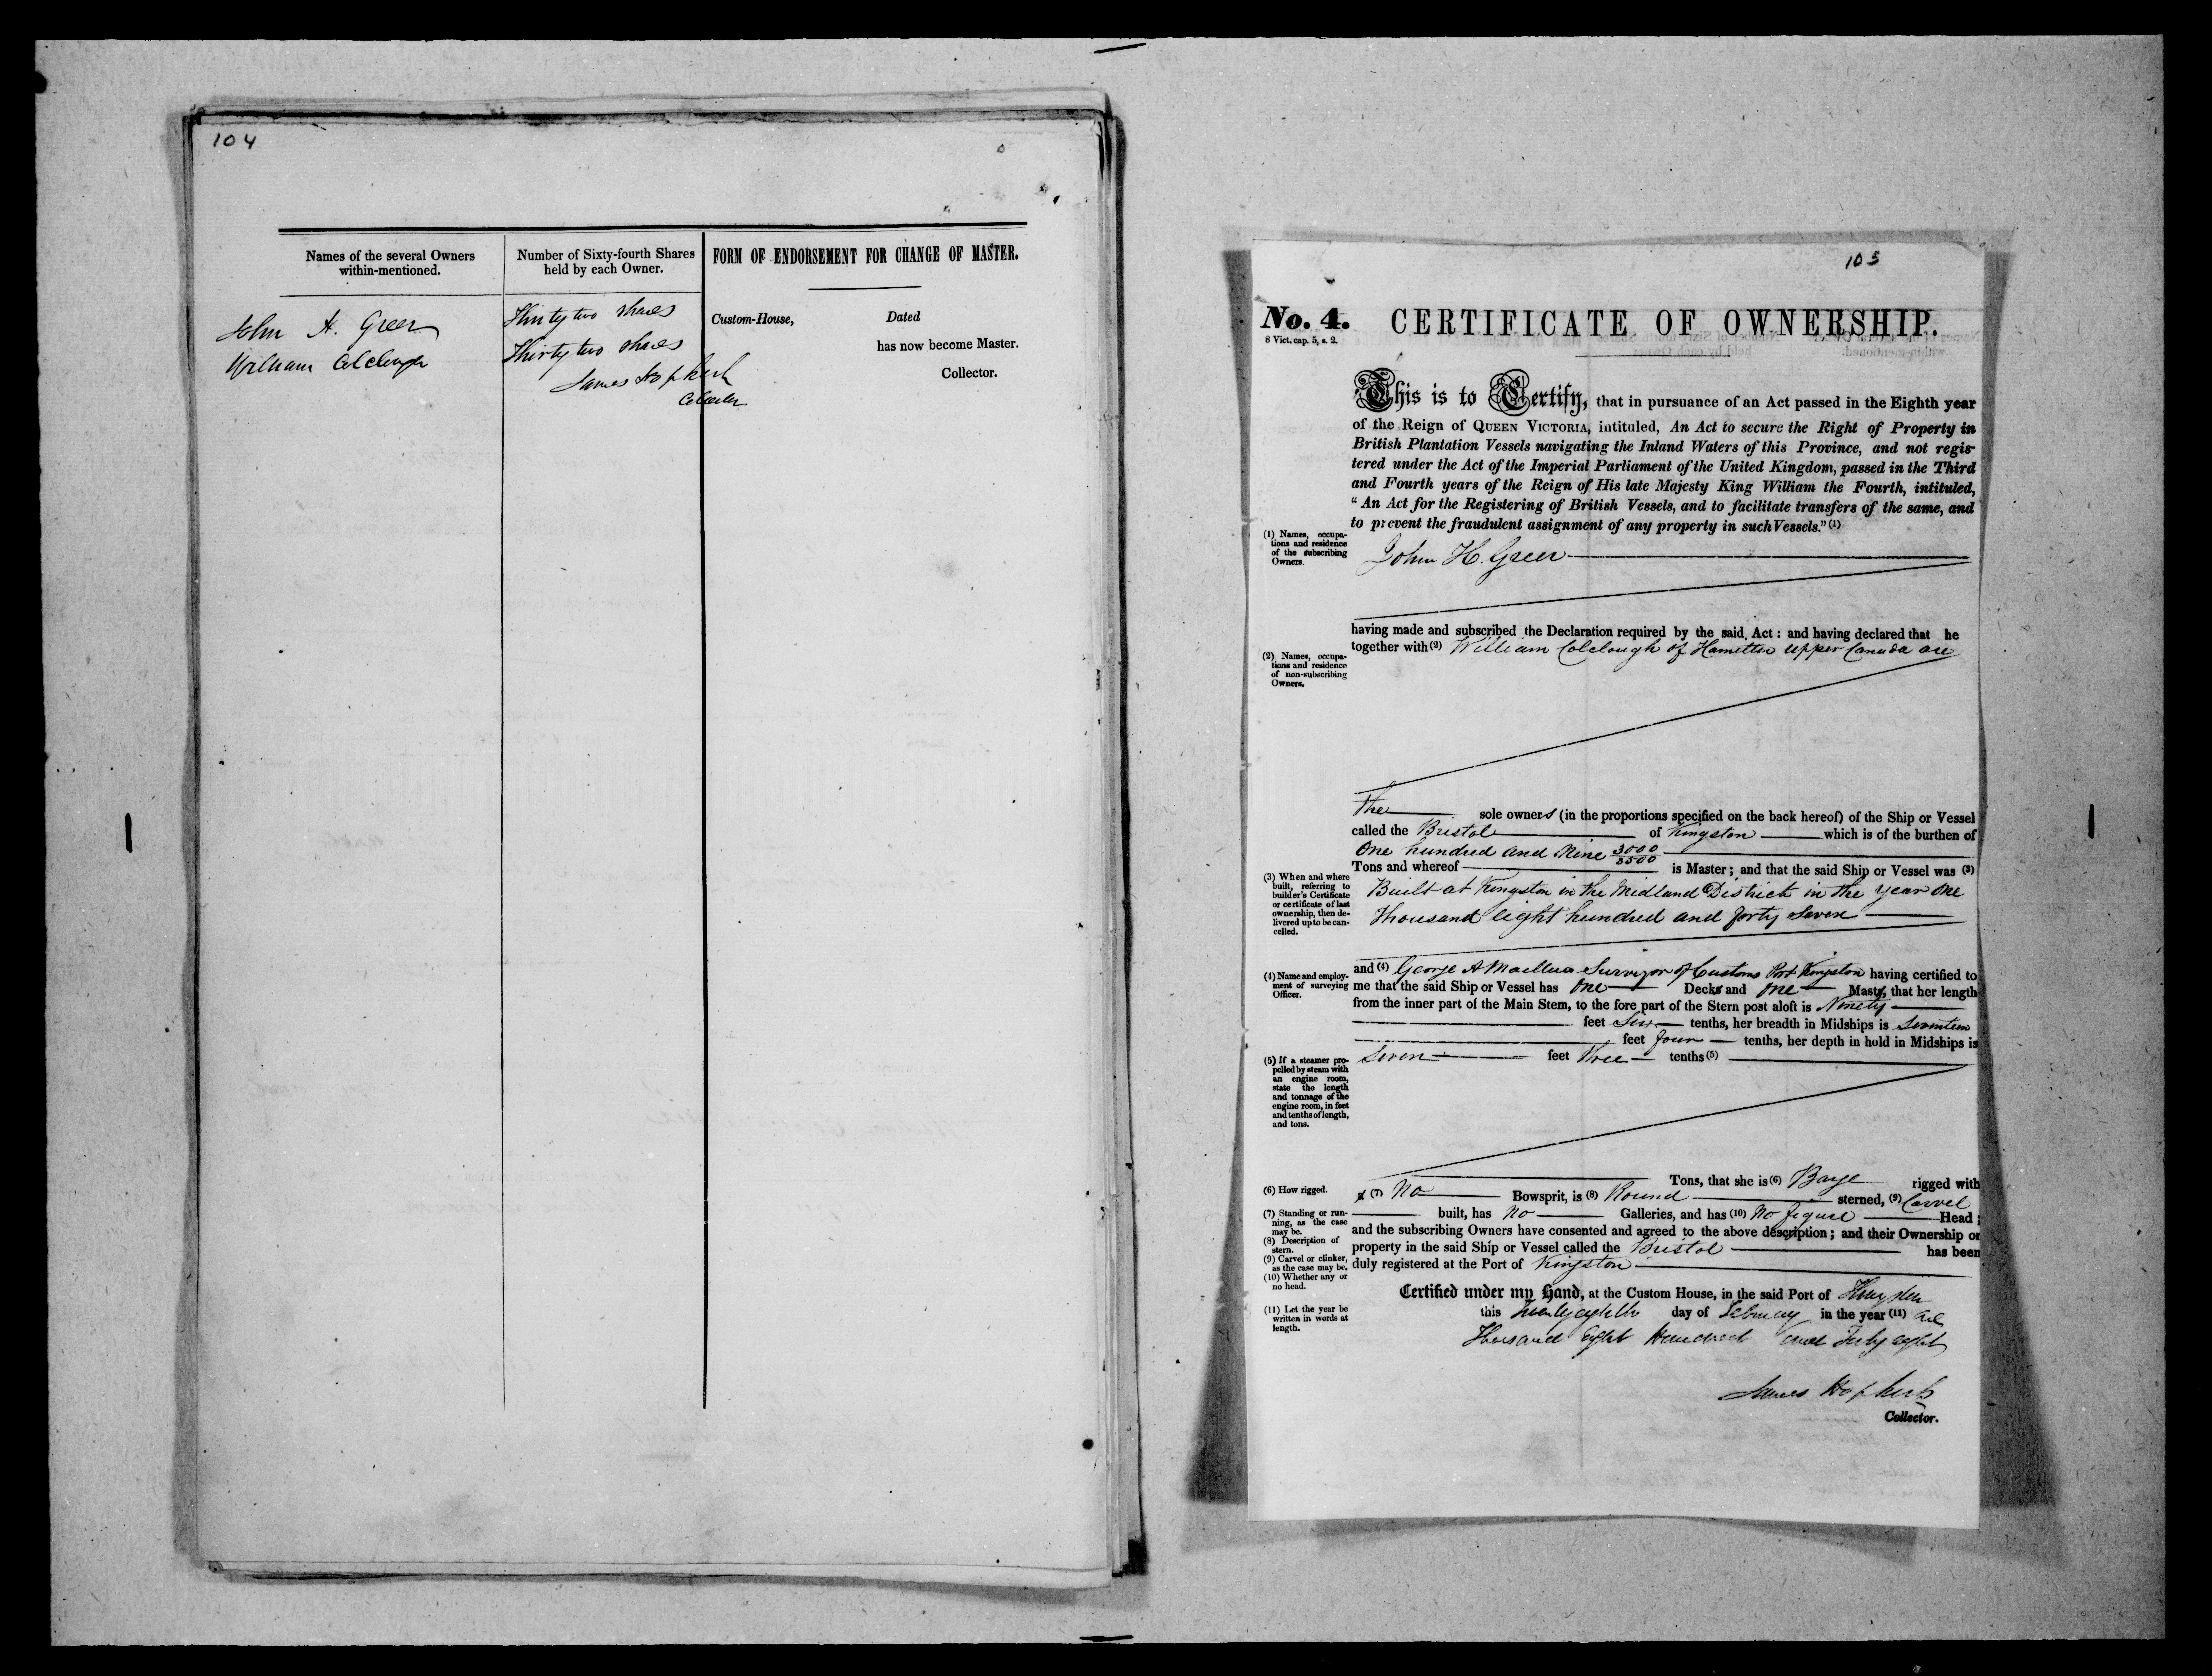 104
Names of the several Owners
within-mentioned.
Number of Sixty-fourth Shares
held by each Owner.
FORM OF ENDORSEMENT FOR CHANGE OF MASTER.
John H. Greer
William Colclough
Thirty two shares
Thirty two shares
James Hopkirk
Collector
Custom-House, Dated
has now become Master.
Collector.
105
No. 4.
8 Vict. cap. 5, s. 2.
CERTIFICATE OF OWNERSHIP.
This is to Certify, that in pursuance of an Act passed in the Eighth year
of the Reign of QUEEN VICTORIA, intituled, An Act to secure the Right of Property in
British Plantation Vessels navigating the Inland Waters of this Province, and not regis-
tered under the Act of the Imperial Parliament of the United Kingdom, passed in the Third
and Fourth years of the Reign of His late Majesty King William the Fourth, intituled,
"An Act for the Registering of British Vessels, and to facilitate transfers of the same, and
to prevent the fraudulent assignment of any property in such Vessels." (1)
(1) Names, occupa-
tions and residence
of the subscribing
Owners.
John H. Greer
having made and subscribed the Declaration required by the said Act: and having declared that he
together with (2) William Colclough of Hamilton Upper Canada are
(2) Names, occupa-
tions and residence
of non-subscribing
Owners.
the sole owners (in the proportions specified on the back hereof) of the Ship or Vessel
called the Bristol of Kingston which is of the burthen of
One hundred and Nine 3000/3500
Tons and whereof is Master; and that the said Ship or Vessel was (3)
(3) When and where
built, referring to
builder's Certificate
or certificate of last
ownership, then de-
livered up to be can-
celled.
Built at Kingston in the Midland District in the year One
Thousand eight hundred and forty seven
(4) Name and employ-
ment of surveying
Officer.
and (4) George A Surveyor of Customs Port Kingston having certified to
me that the said Ship or Vessel has One Decks and One Masts, that her length
from the inner part of the Main Stem, to the fore part of the Stern post aloft is Ninety
feet Six tenths, her breadth in Midships is Seventeen
feet four tenths, her depth in hold in Midships is
Seven feet three tenths (5)
(5) If a steamer pro-
pelled by steam with
an engine room,
state the length
and tonnage of the
engine room, in feet
and tenths of length,
and tons.
Tons, that she is (6) Barge rigged with
(6) How rigged.
(7) No Bowsprit, is (8) Round sterned, (9) Carvel
(7) Standing or run-
ning, as the case
may be.
built, has No Galleries, and has (10) No figure Head;
and the subscribing Owners have consented and agreed to the above description; and their Ownership or
(8) Description of
stern.
property in the said Ship or Vessel called the Bristol has been
(9) Carvel or clinker,
as the case may be.
duly registered at the Port of Kingston
(10) Whether any or
no head.
Certified under my Hand, at the Custom House, in the said Port of Kingston
(11) Let the year be
written in words at
length.
this Twenty eighth day of February in the year (11) One
Thousand Eight Hundred and Forty eight
James Hopkirk
Collector.